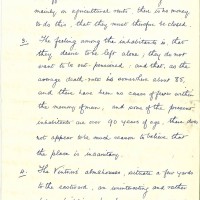 mainly on agricultural rents, there is no money
to do this, that they must therefore be closed.
3. The feeling among the inhabitants is, that
they desire to be left alone, they do not
want to be out-possessed, and that, as the
average death-rate has somewhere about 35,
and there have been no cases of fever within
the memory of man, and some of the present
inhabitants are over 90 years of age, there does
not appear to be much reason to believe that
the place is insanitary.
4. The almshouses, situate a few yards
to the eastward, an interesting and rather